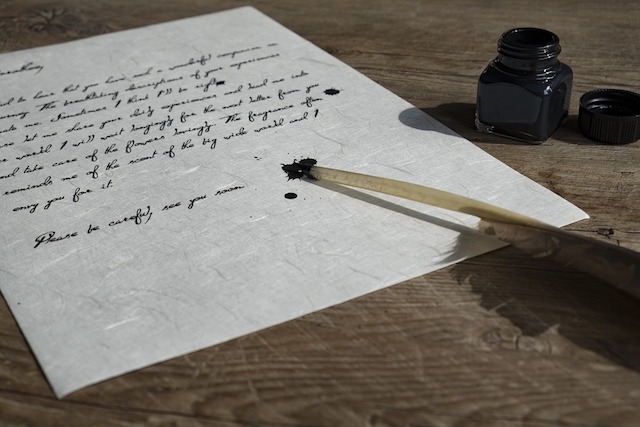 to hear that you have had a wonderful
The breathtaking descriptions of your experiences
me. Sometimes I think I'll be right
let me share your daily experience and lead me into
world. I will wait longingly for the next letter from you
and take care of the flowers lovingly. The fragrance of
reminds me of the scent of the big wide world and I
envy you for it.
Please be careful, see you soon